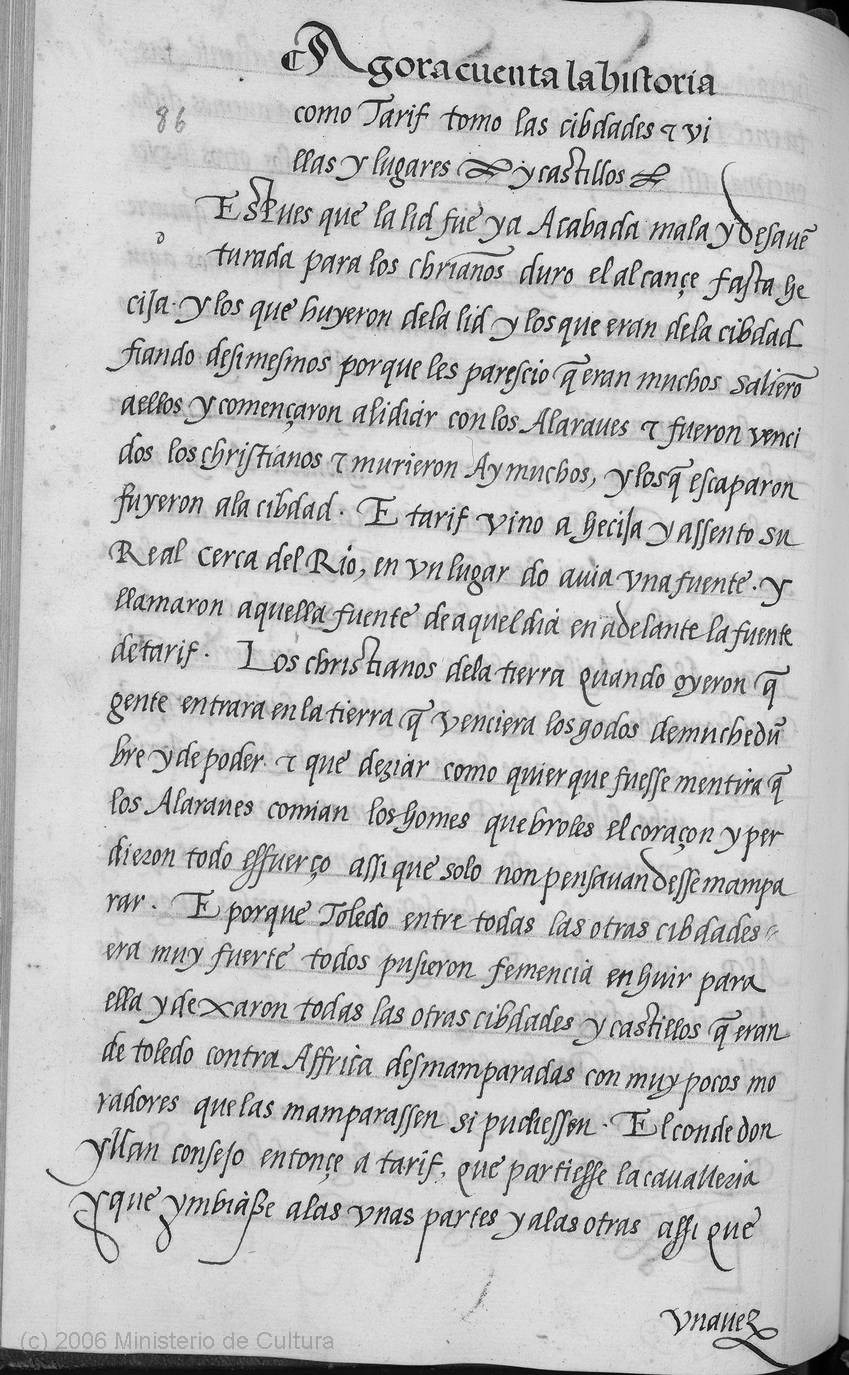 Agora cuenta la historia
86
como Tarif tomo las cibdades ⁊ vi
llas y lugares y castillos
Espues que la lid fue ya Acabada mala y desauē
d
turada para los chrianos duro el alcançe fasta he
cija. y los que huyeron dela lid y los que eran dela cibdad
fiando desimesmos porque les parescio q̄ eran muchos salierō
aellos y començaron alidiar con los Alaraues ⁊ fueron venci
dos los christianos ⁊ murieron Ay muchos, y los q̄ escaparon
fuyeron ala cibdad. E tarif vino a hecija y assento su
Real cerca del Rio, en vn lugar do auia vna fuente. y
llamaron aquella fuente de aquel dia en adelante la fuente
de tarif. Los christianos dela tierra quando oyeron q̄
gente entrara en la tierra q̄ venciera los godos de muchedū
bre y de poder. ⁊ que deziar como quier que fuesse mentira q̄
los Alaraues comian los homes quebroles el coraçon y per
dieron todo esfuerço assi que solo non pensauan desse mampa
rar. E porque Toledo entre todas las otras cibdades
era muy fuerte todos pusieron femencia en huir para
ella y dexaron todas las otras cibdades y castillos q̄ eran
de toledo contra Affrica desmamparadas con muy pocos mo
radores que las mamparassen si pudiessen. El conde don
yllan consejo entonçe a tarif, que partiesse la cavalleria
y que ymbiasse alas vnas partes y alas otras assi que
vna vez
(c) 2006 Ministerio de Cultura